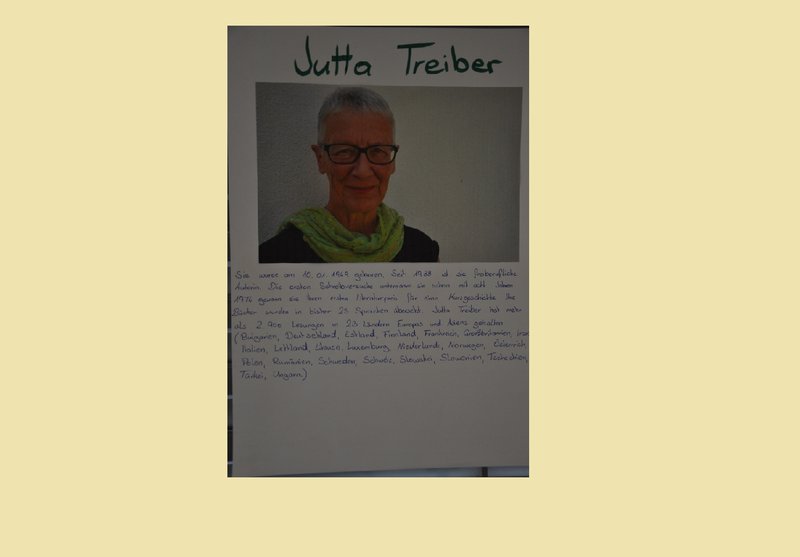 Jutta Treiber
Sie wurde am 10.01.1949 geboren. Seit 1988 ist sie freiberufliche
Autorin. Die ersten Schreibversuche unternahm sie schon mit acht Jahren
1976 gewann sie ihren ersten Literaturpreis für eine Kurzgeschichte Ihre
Bücher wurden in bisher 25 Sprachen übersetzt. Jutta Treiber hat mehr
als 2 700 Lesungen in 23 Ländern Europas und Asiens gehalten
(Bulgarien, Deutschland, Estland, Finnland, Frankreich, Großbritannien,
Italien, Lettland, Litauen, Luxemburg, Niederlande, Norwegen, Österreich
Polen, Rumänien, Schweden, Schweiz, Slowakei, Slowenien, Tschechien,
Türkei, Ungarn)